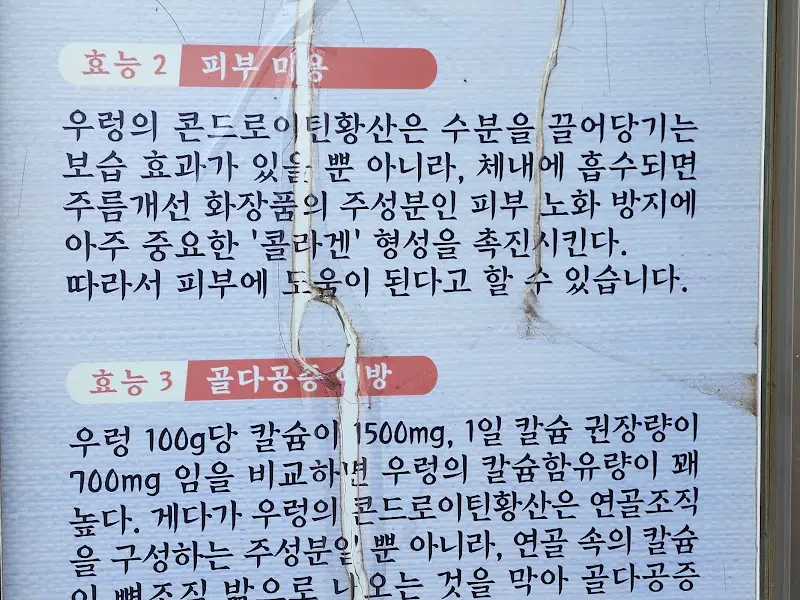 효능 2 피부 미용
우렁의 콘드로이틴황산은 수분을 끌어당기는
보습 효과가 있을 뿐 아니라, 체내에 흡수되면
주름개선 화장품의 주성분인 피부 노화 방지에
아주 중요한 '콜라겐' 형성을 촉진시킨다.
따라서 피부에 도움이 된다고 할 수 있습니다.
효능 3 골다공증 예방
우렁 100g당 칼슘이 1500mg, 1일 칼슘 권장량이
700mg 임을 비교하면 우렁의 칼슘함유량이 꽤
높다. 게다가 우렁의 콘드로이틴황산은 연골조직
을 구성하는 주성분일 뿐 아니라, 연골 속의 칼슘
이 뼈조직 밖으로 나오는 것을 막아 골다공증